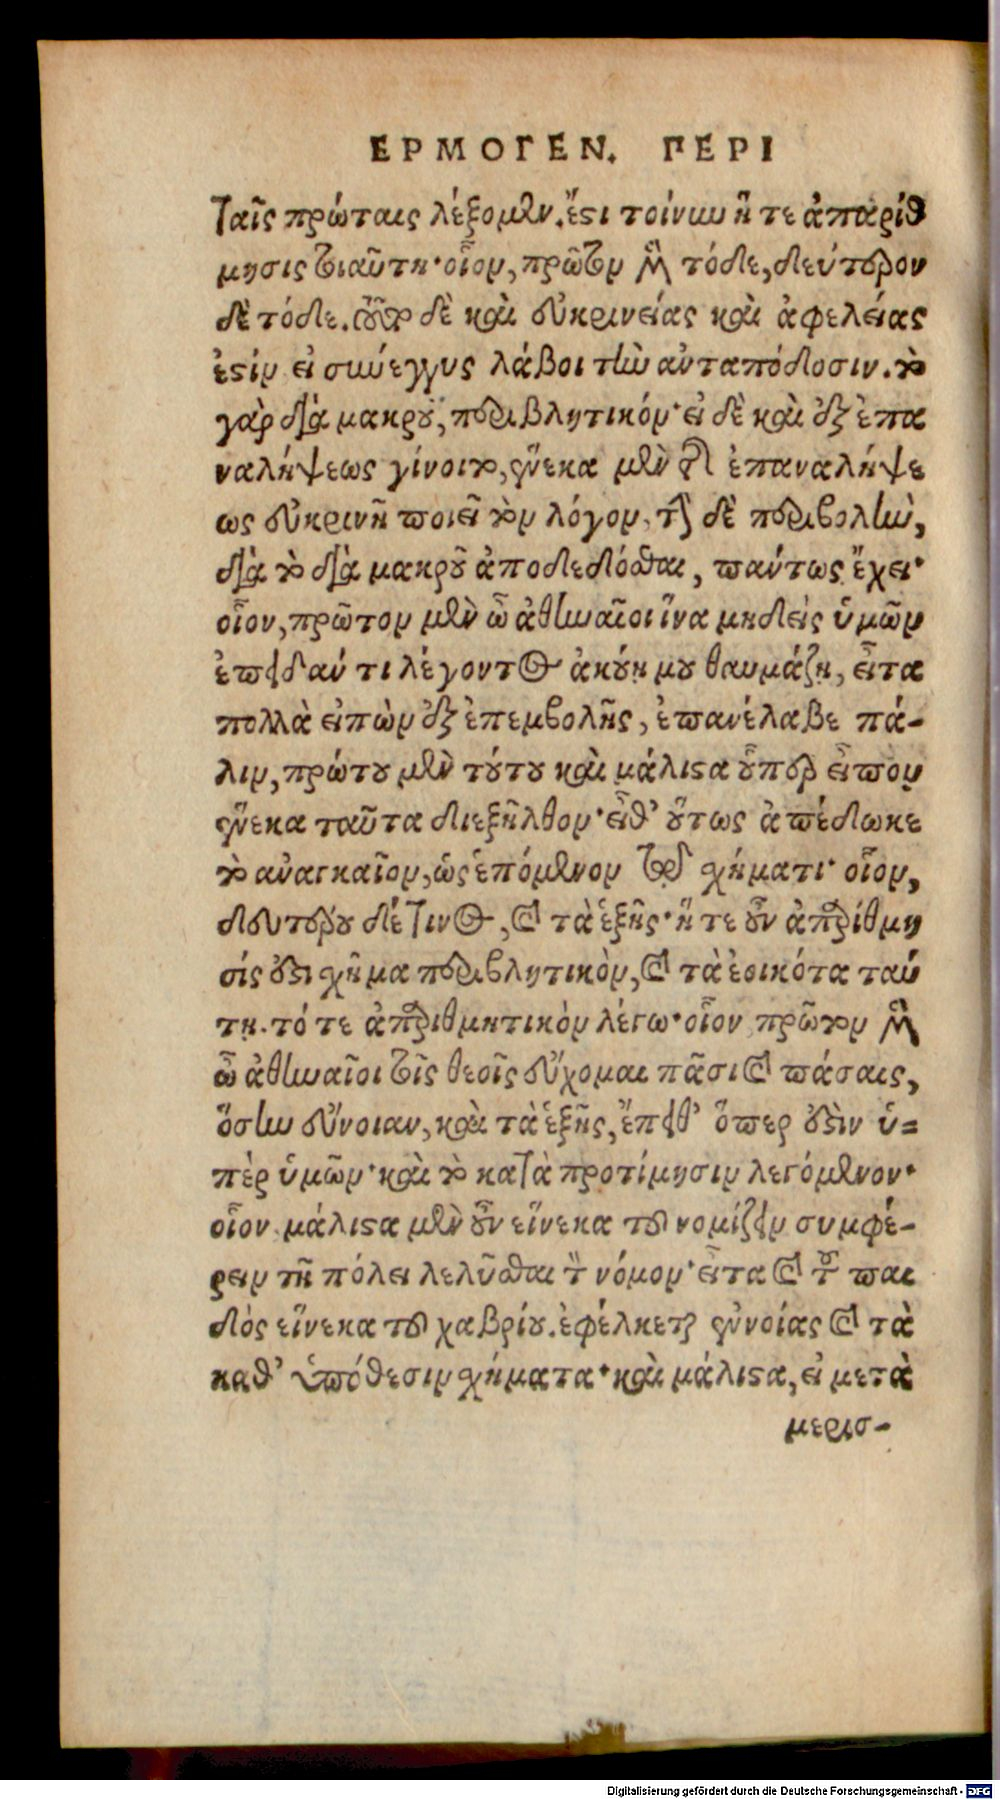 ΕΡΜΟΓΕΝ. ΠΕΡΙ
ταῖς πρώταις λέξομεν. ἔστι τοίνυν ἥ τε ἀπαρίθ
μησις τοιαύτη· οἷον, πρῶτον μὲν τόδε, δεύτερον
δὲ τόδε. τοῦτο δὲ καὶ εὐκρινείας καὶ ἀφελείας
ἐστίν εἰ σύνεγγυς λάβοι τὴν ἀνταπόδοσιν. τὸ
γὰρ διὰ μακροῦ, περιβλητικόν· εἰ δὲ καὶ ἐξ ἐπα
ναλήψεως γίνοιτο, ἕνεκα μὲν τῆς ἐπαναλήψε
ως εὐκρινῆ ποιεῖ τὸν λόγον, τὴν δὲ περιβολὴν,
διὰ τὸ διὰ μακροῦ ἀποδεδόσθαι, πάντως ἔχει·
οἷον, πρῶτον μὲν ὦ ἀθηναῖοι ἵνα μηδεὶς ὑμῶν
ἐπειδάν τι λέγοντος ἀκούῃ μου θαυμάζῃ, εἶτα
πολλὰ εἰπὼν ἐξ ἐπεμβολῆς, ἐπανέλαβε πά-
λιν, πρώτου μὲν τούτου καὶ μάλιστα οὗπερ εἶπον
ἕνεκα ταῦτα διεξῆλθον· εἶθ' οὕτως ἀπέδωκε
τὸ ἀναγκαῖον, ὡς ἑπόμενον τῷ σχήματι· οἷον,
δευτέρου δέ τινος, καὶ τὰ ἑξῆς· ἥ τε οὖν ἀπαρίθμη
σίς ἐστι σχῆμα περιβλητικὸν, καὶ τὰ ἐοικότα ταύ
τῃ. τό τε ἀπαριθμητικὸν λέγω· οἷον πρῶτον μὲν
ὦ ἀθηναῖοι τοῖς θεοῖς εὔχομαι πᾶσι καὶ πάσαις,
ὅσην εὔνοιαν, καὶ τὰ ἑξῆς, ἔπειθ' ὅπερ ἐστὶν ὑ-
πὲρ ὑμῶν· καὶ τὸ κατὰ προτίμησιν λεγόμενον·
οἷον μάλιστα μὲν οὖν εἵνεκα τοῦ νομίζειν συμφέ-
ρειν τῇ πόλει λελῦσθαι τὸν νόμον· εἶτα καὶ τοῦ παι
δὸς εἵνεκα τοῦ χαβρίου. ἐφέλκεται ἐννοίας καὶ τὰ
καθ' ὑπόθεσιν σχήματα· καὶ μάλιστα, εἰ μετὰ
μερισ-
Digitalisierung gefördert durch die Deutsche Forschungsgemeinschaft - DFG